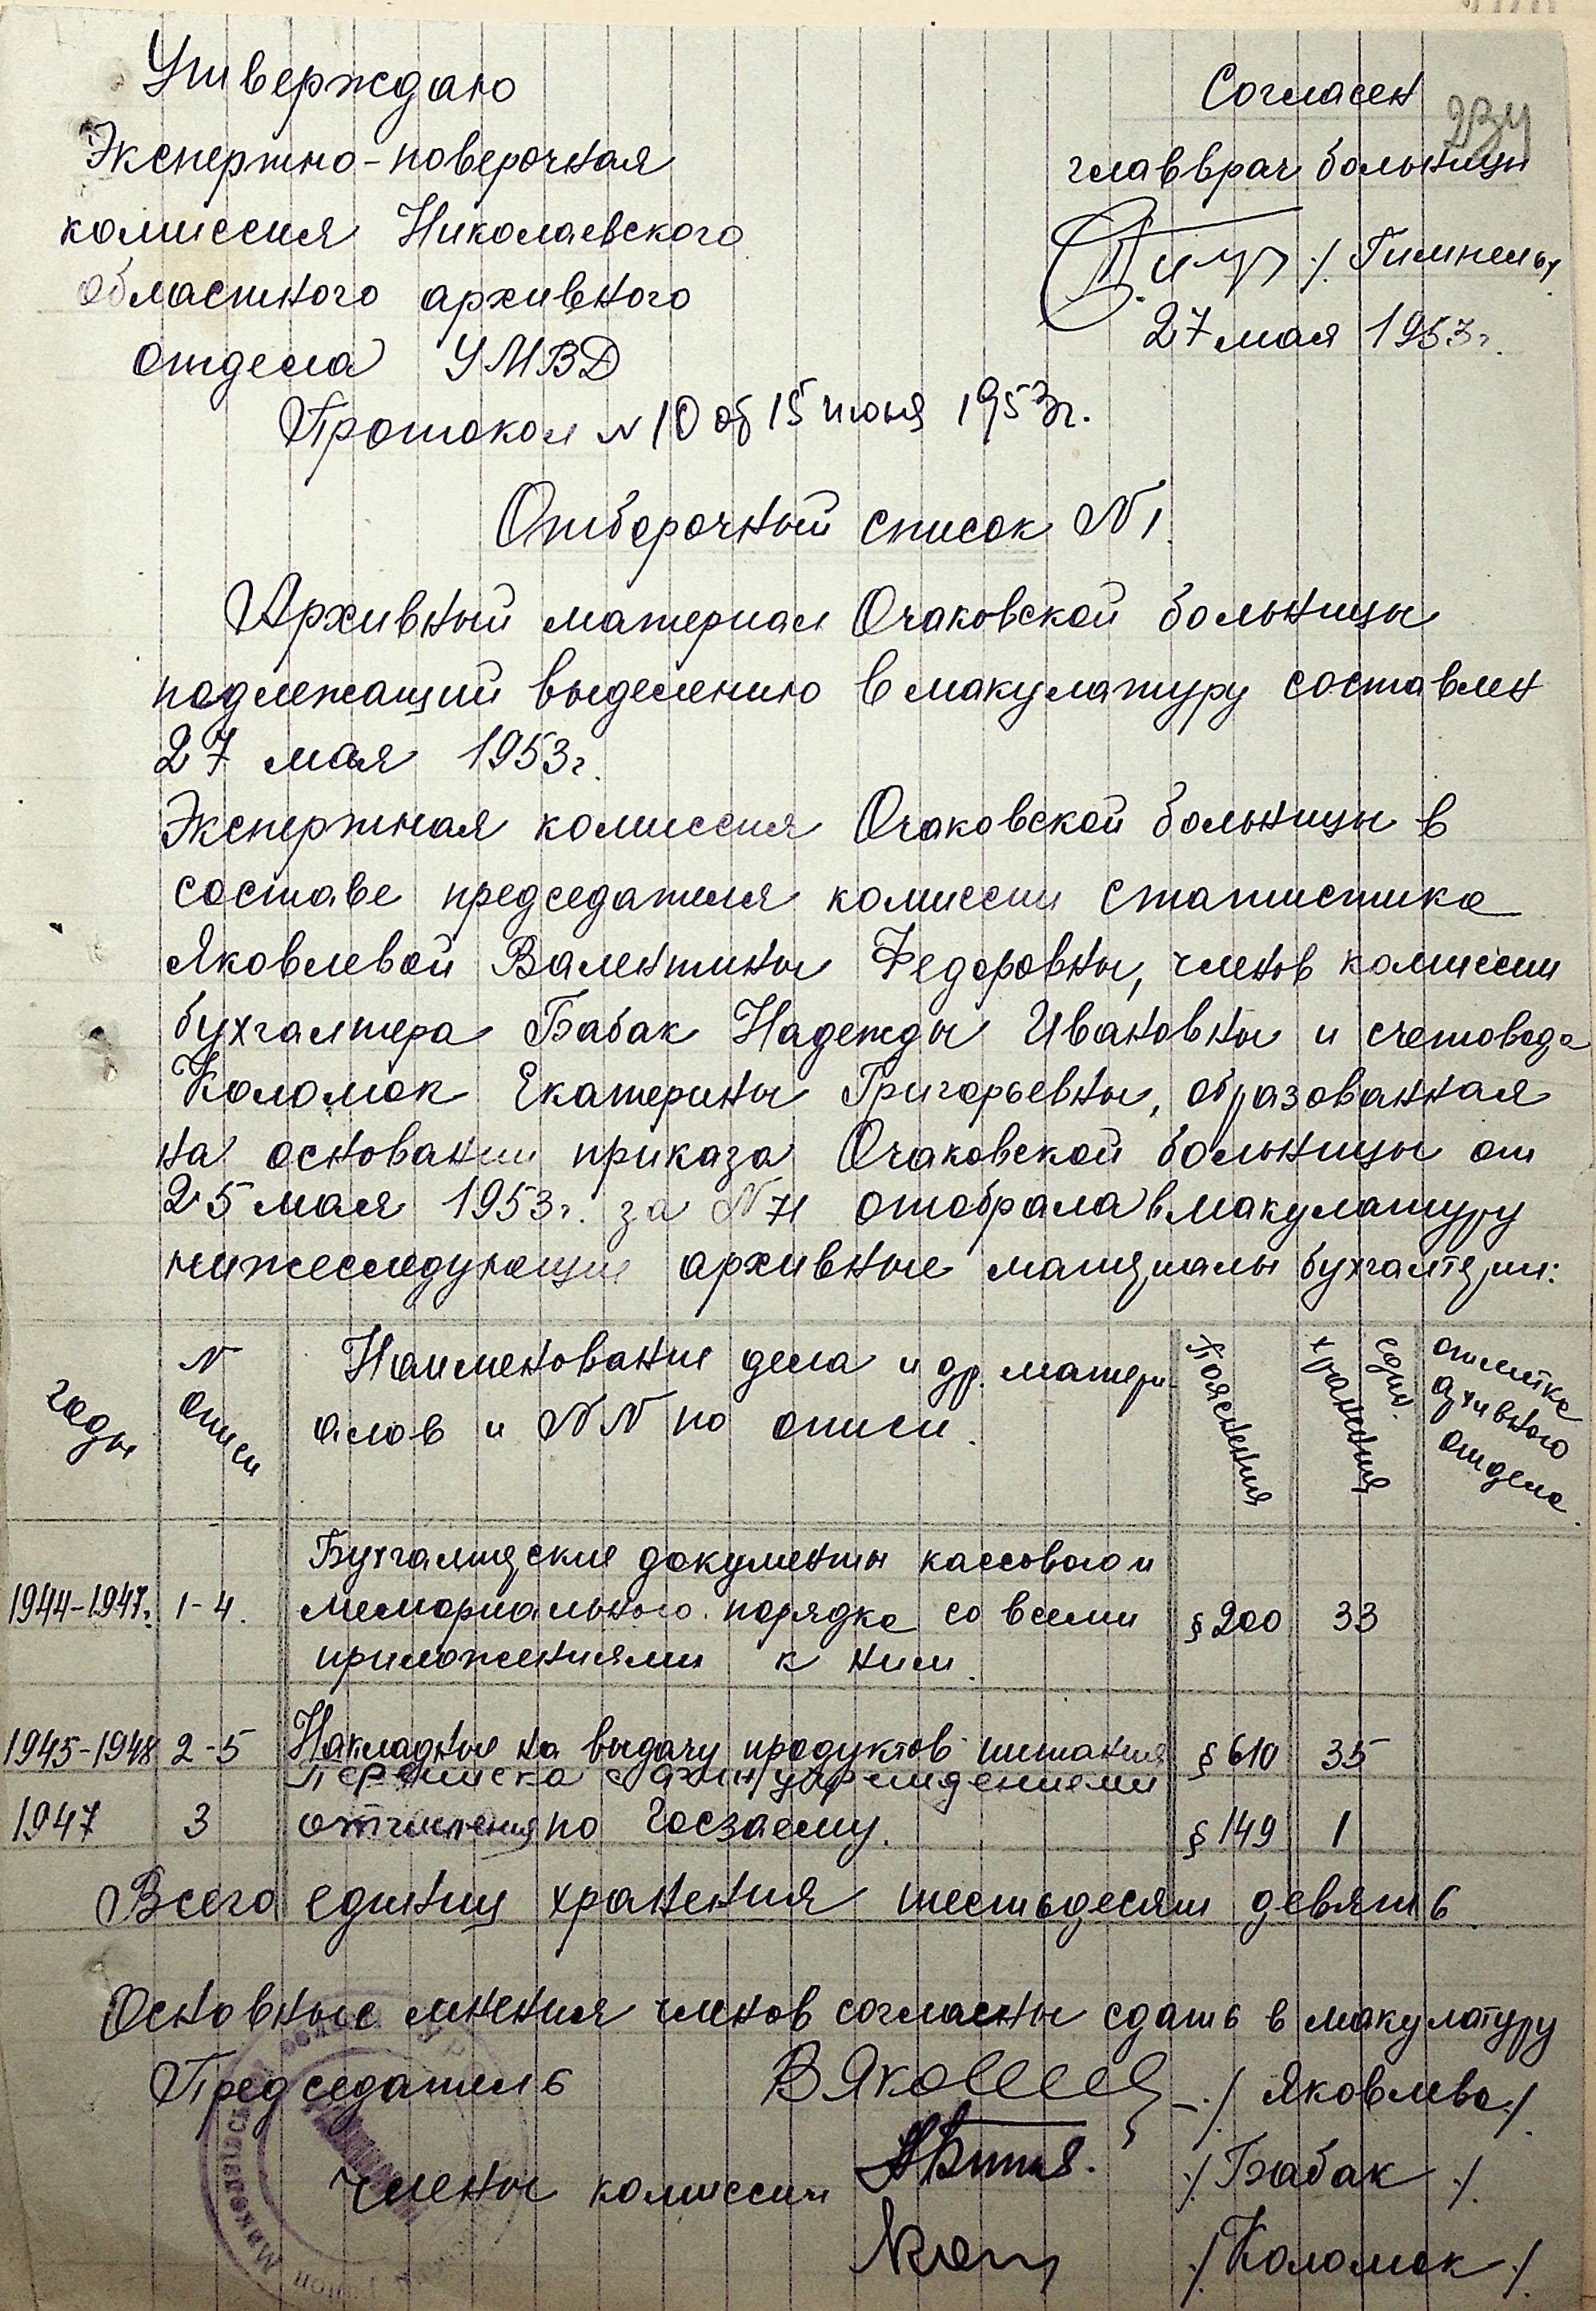 234
Утверждаю
Экспертно-поверочная
комиссия Николаевского
областного архивного
отдела УМВД
Протокол N 10 от 15 июня 1953г.
Согласен
главврач больницы
27 мая 1953г.
Отборочный список N 1.
Архивный материал Очаковской больницы
подлежащий выделению в макулатуру составлен
27 мая 1953г.
Экспертная комиссия Очаковской больницы в
составе председателя комиссии статистика
Яковлевой Валентины Федоровны, членов комиссии
бухгалтера Бабак Надежды Ивановны и счетовода
Коломок Екатерины Григорьевны, образованная
на основании приказа Очаковской больницы от
25 мая 1953г. за N отобрала в макулатуру
нижеследующие архивные материалы бухгалтерии:
годы
N описи
Наименование дела и др. матери-
алов и NN по описи.
Пояснения
един. хранения
отметка архивного отдела.
Бухгалтерские документы кассового и
1944-1947г. 1-4. мемориального порядка со всеми § 200 33
приложениями к ним.
1945-1948 2-5 Накладные на выдачу продуктов питания § 610 35
Переписка с учреждениями
1947 3 отчисления по Госзаему. § 149 1
Всего единиц хранения шестьдесят девять
Основные мнения членов согласны сдать в макулатуру
Председатель В Яковлева /Яковлева/.
Члены комиссии /Бабак/.
/Коломок/.